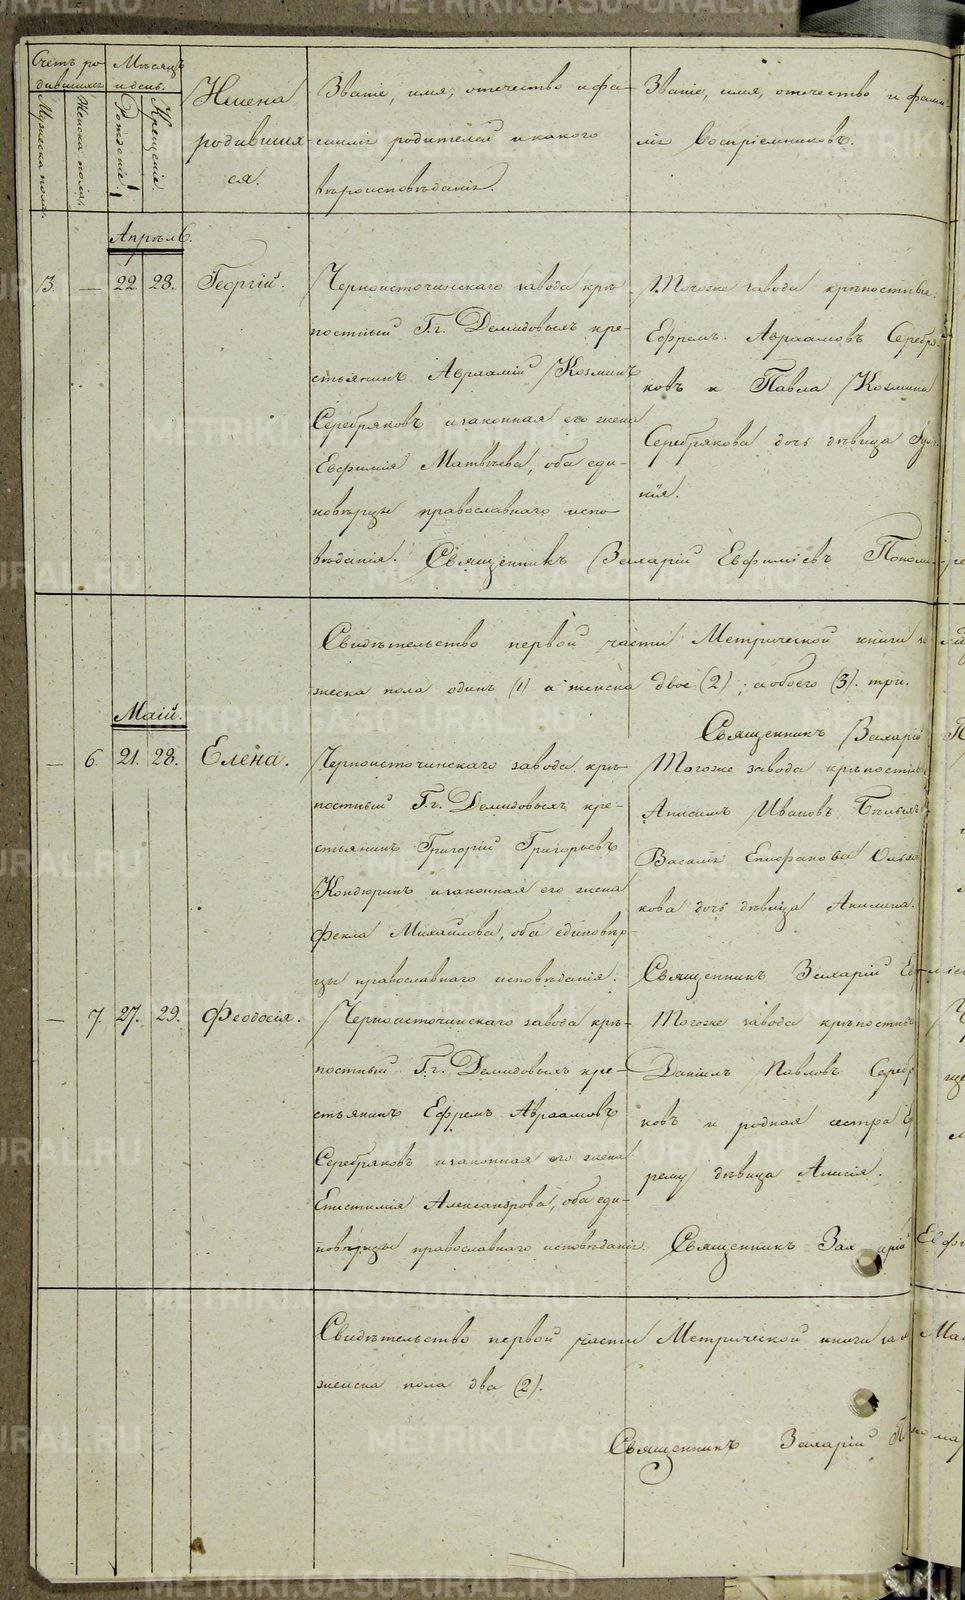 Счетъ ро-
дившихся
Мужеска пола.
Женска пола.
Мѣсяцъ
и день.
Рожденіе.
Крещеніе.
Имена
родивших-
ся.
Званіе, имя, отечество и фа-
миліи родителей и какого
вѣроисповѣданія.
Званіе, имя, отечество и фами-
ліи Воспріемниковъ.
Апрѣль.
3. — 22. 28. Георгій.
Черноисточинскаго завода крѣ-
постный Г.г. Демидовыхъ кре-
стьянинъ Авраамій Козминъ
Серебряковъ и законная его жена
Евфимія Матвѣева, оба еди-
новѣрцы православнаго испо-
вѣданія.
Тогоже завода крѣпостные
Ефремъ Авраамовъ Серебря-
ковъ и Павла Козмина
Серебрякова дочь дѣвица
нія.
Священникъ Захарій Евфиміевъ Пономаре
Свидѣтельство первой части Метрической книги
жеска пола одинъ (1) а женска двое (2); а обоего (3). три.
Священникъ Захарій П
Маій.
— 6. 21. 28. Елена.
Черноисточинскаго завода крѣ-
постный Г.г. Демидовыхъ кре-
стьянинъ Григорій Григорьевъ
Кондюринъ и законная его жена
Фекла Михайлова, оба единовѣр-
цы православнаго исповѣданія.
Тогоже завода крѣпостные
Анисимъ Ивановъ Бѣлыхъ
Василія Епифанова
кова дочь дѣвица Акилина.
Священникъ Захарій
— 7. 27. 29. Феодосія.
Черноисточинскаго завода крѣ-
постный Г.г. Демидовыхъ кре-
стьянинъ Ефремъ Авраамовъ
Серебряковъ и законная его жена
Епистимія Александрова, оба еди-
новѣрцы православнаго исповѣданія.
Тогоже завода крѣпостный
Даніилъ Павловъ Серебр
ковъ и родная сестра Еф
рему дѣвица Анисія.
Священникъ Захарій Евфи
Свидѣтельство первой части Метрической книги за Ма
женска пола два (2).
Священникъ Захарій Пономар
METRIKI.GASO-URAL.RU